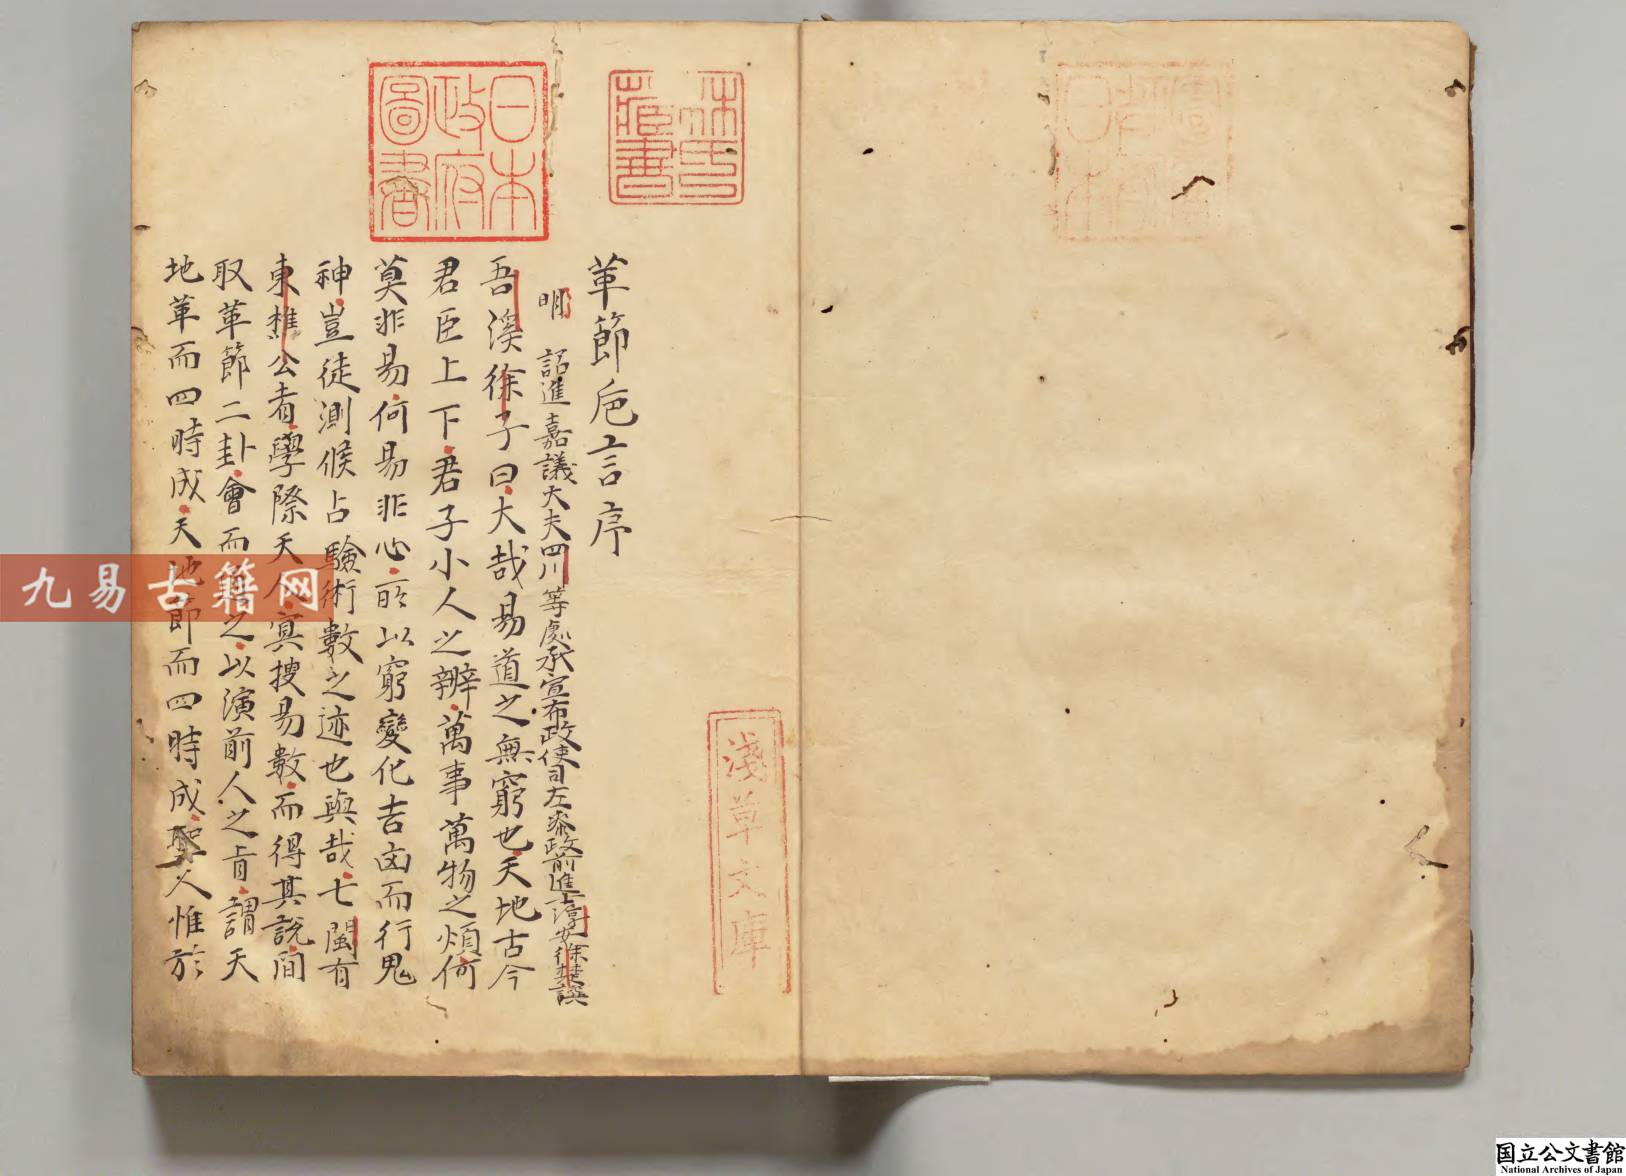 林氏藏書
日本政府圖書
淺草文庫
革節卮言序
明 詔進嘉議大夫四川等處承宣布政使司左叅政前進士淳安徐楚譔
吾溪徐子曰大哉易道之無窮也天地古今
君臣上下君子小人之辨萬事萬物之煩何
莫非易何易非心所以窮變化吉凶而行鬼
神豈徒測候占驗術數之迹也與哉七閩有
東樵公者學際天人冥搜易數而得其說間
取革節二卦會而之以演前人之旨謂天
地革而四時成天地節而四時成聖人惟於
九易古籍网
国立公文書館
National Archives of Japan